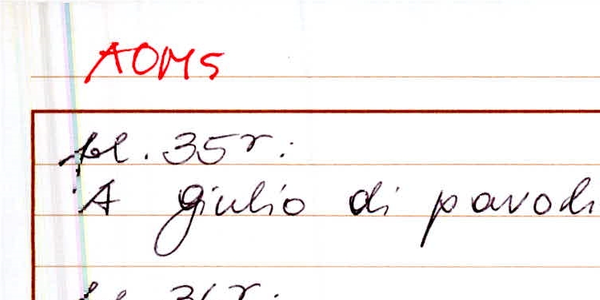 AOMS
pl. 35r:
A giulio di pavodi